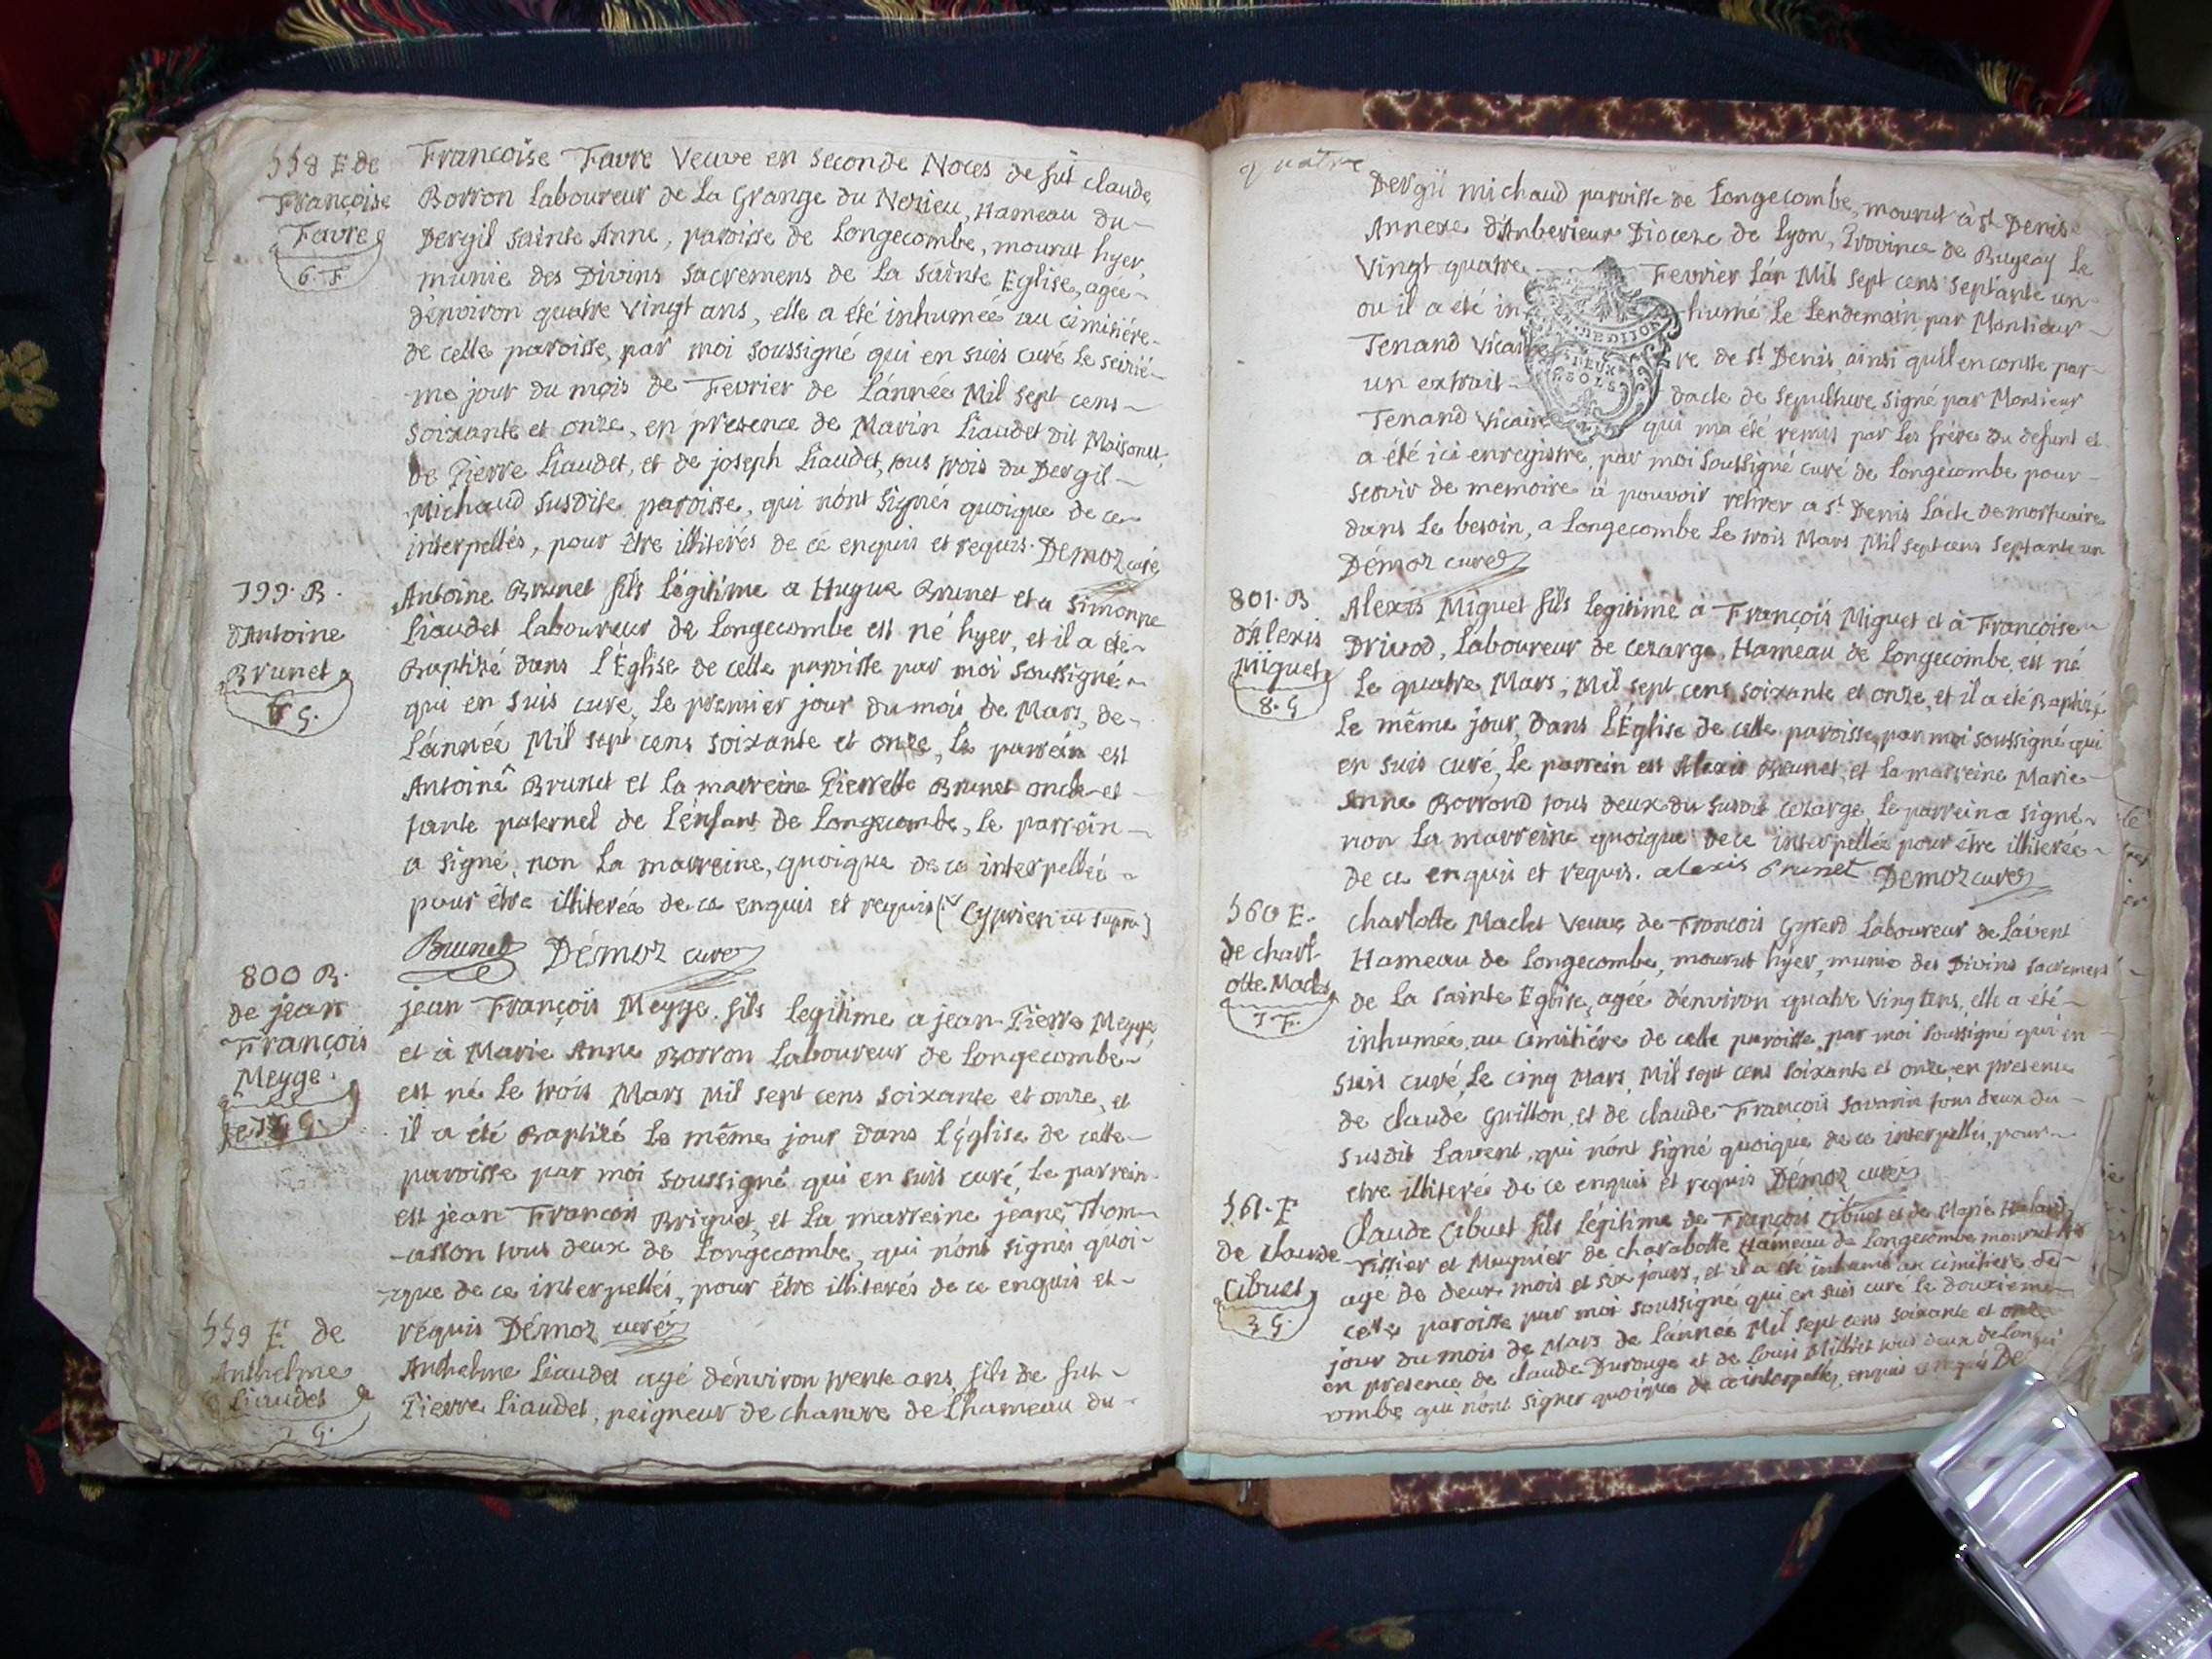 558 E de
Françoise
Favre
6. F
Françoise Favre Veuve en seconde Noces de fut claude
Borron Laboureur de La Grange du Nerieu, Hameau du
Dergil sainte Anne, paroisse de Longecombe, mourut hyer,
munie des Divins sacremens de La sainte Eglise, agee
d'environ quatre Vingt ans, elle a été inhumée au cimitiére
de cette paroisse, par moi soussigné qui en suis curé Le seizié-
me jour du mois de Fevrier de L'année Mil sept cens
soixante et onze, en presence de Marin Liaudet dit
de Pierre Liaudet, et de joseph Liaudet, tous trois du Dergil
Michaud susdite paroisse, qui n'ont signés quoique de ce
interpellés, pour être illiterés de ce enquis et requis. Démoz curé
799. B.
d'Antoine
Brunet
G.
Antoine Brunet fils légitime a Hugue Brunet et a Simonne
Liaudet Laboureur de Longecombe est né hyer, et il a été
Baptizé dans L'Église de cette paroisse par moi soussigné
qui en suis curé, Le premier jour du mois de Mars, de
L'année Mil sept cens soixante et onze, Le parrein est
Antoine Brunet et La marreine Pierrette Brunet oncle et
tante paternel de L'enfant de Longecombe, Le parrein
a signé, non La marreine, quoique de ce interpellée
pour être illiterée de ce enquis et requis Cyprien ut supra
Brunet Démoz curé
800 B.
de jean
François
Meyge.
G.
jean François Meyge fils legitime a jean Pierre Meyge
et à Marie Anne Borron Laboureur de Longecombe
est né Le trois Mars Mil sept cens soixante et onze, et
il a été Baptizé Le même jour dans L'Église de cette
paroisse par moi soussigné qui en suis curé, Le parrein
est jean François Briguet, et La marreine jeane Thom-
-asson tous deux de Longecombe, qui n'ont signés quoi-
-que de ce interpellés, pour être illiterés de ce enquis et
requis Démoz curé
559 E. de
Anthelme
Liaudet
G.
Anthelme Liaudet agé d'environ trente ans, fils de fut
Pierre Liaudet, peigneur de chanvre de L'hameau du
quatre
Dergil michaud paroisse de Longecombe, mourut à St Denis
Annexe d'Anberieux Dioceze de Lyon, Province de Bugeay Le
Vingt quatre Fevrier L'an Mil sept cens septante un
ou il a été in humé Le Lendemain par Monsieur
Tenand Vicaire re de St Denis, ainsi qu'il en conste par
un extrait d'acte de sepulture signé par Monsieur
Tenand Vicaire qui m'a été remis par Les fréres du defunt et
a été ici enregistre, par moi soussigné curé de Longecombe pour
servir de memoire a pouvoir retirer a St Denis L'acte de mortuaire
dans Le besoin, a Longecombe Le trois Mars Mil sept cens septante un
Démoz curé
DE DIJON
DEUX
SOLS
801. B
d'Alexis
Miguet
8. G
Alexis Miguet fils legitime à François Miguet et à Françoise
Drivod, Laboureur de cezarge, Hameau de Longecombe, est né
Le quatre Mars, Mil sept cens soixante et onze, et il a été Baptizé
Le même jour, Dans L'Église de cette paroisse, par moi soussigné qui
en suis curé, Le parrein est Alexis Brunet, et La marreine Marie
Anne Borrond tous deux du susdit cezarge, Le parrein a signé
non La marreine quoique de ce interpellée pour être illiterée
de ce enquis et requis. alexis brunet Démoz curé
560 E.
de charl-
otte Maclet
7 F.
charlotte Maclet Veuve de François Gyrerd Laboureur de Lavent
Hameau de Longecombe, mourut hyer, munie des Divins sacremens
de La sainte Eglise, agée d'environ quatre Vingt ans, elle a été
inhumée au cimitiére de cette paroisse, par moi soussigné qui en
suis curé, Le cinq Mars Mil sept cens soixante et onze, en presence
de claude Guillon, et de claude François savarin tous deux du
susdit Lavent, qui n'ont signé quoique de ce interpellés, pour
etre illiterés de ce enquis et requis Démoz curé
561. E
de claude
Cibuet
3 G.
Claude Cibuet fils légitime de François Cibuet et de Marie
tissier et Meunier de charabotte Hameau de Longecombe mourut
agé de deux mois et six jours, et il a été inhumé au cimitiére de
cette paroisse par moi soussigné qui en suis curé Le douziéme
jour du mois de Mars de L'année Mil sept cens soixante et onze
en presence de claude Durouge et de Louis tous deux de Longe
ombe qui n'ont signer quoique de ce interpellés, enquis et requis De